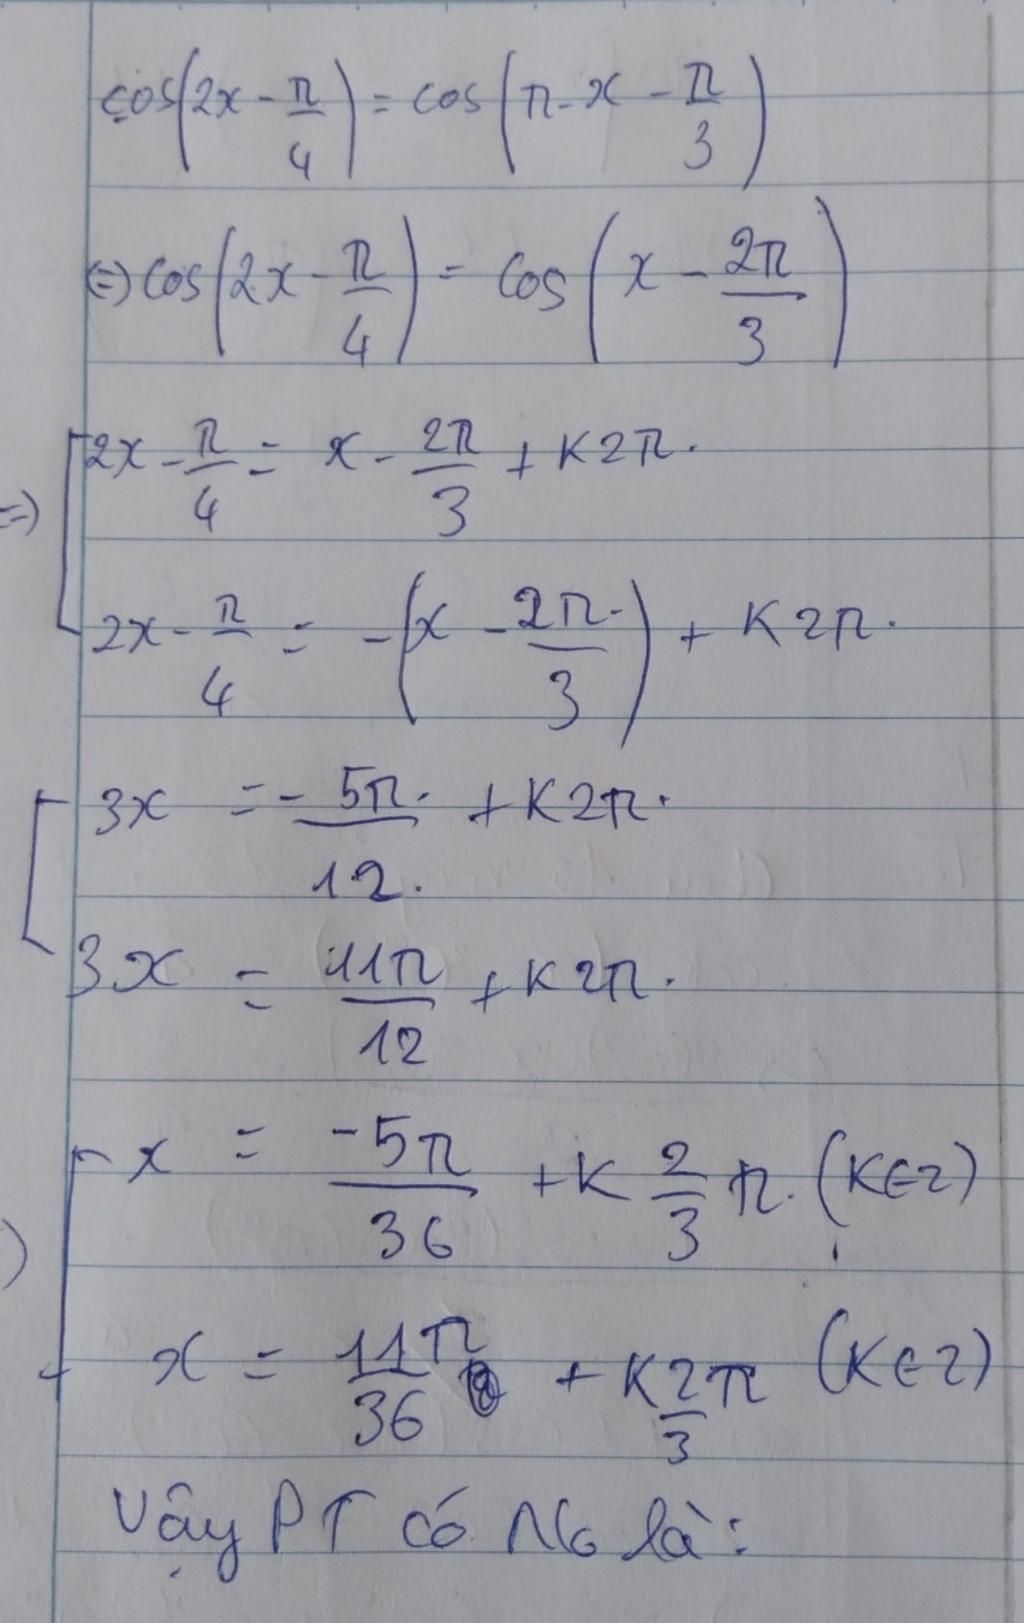 cos(2x - π/4) = cos(π - x - π/3)
⇔ cos(2x - π/4) = cos(x - 2π/3)
⇒ [ 2x - π/4 = x - 2π/3 + K2π.
2x - π/4 = -(x - 2π/3) + K2π.
[ 3x = - 5π/12 + K2π.
3x = 11π/12 + K2π.
) [ x = -5π/36 + K 2/3 π. (K∈Z)
x = 11π/36 + K 2/3 π (K∈Z)
Vậy PT có No là: